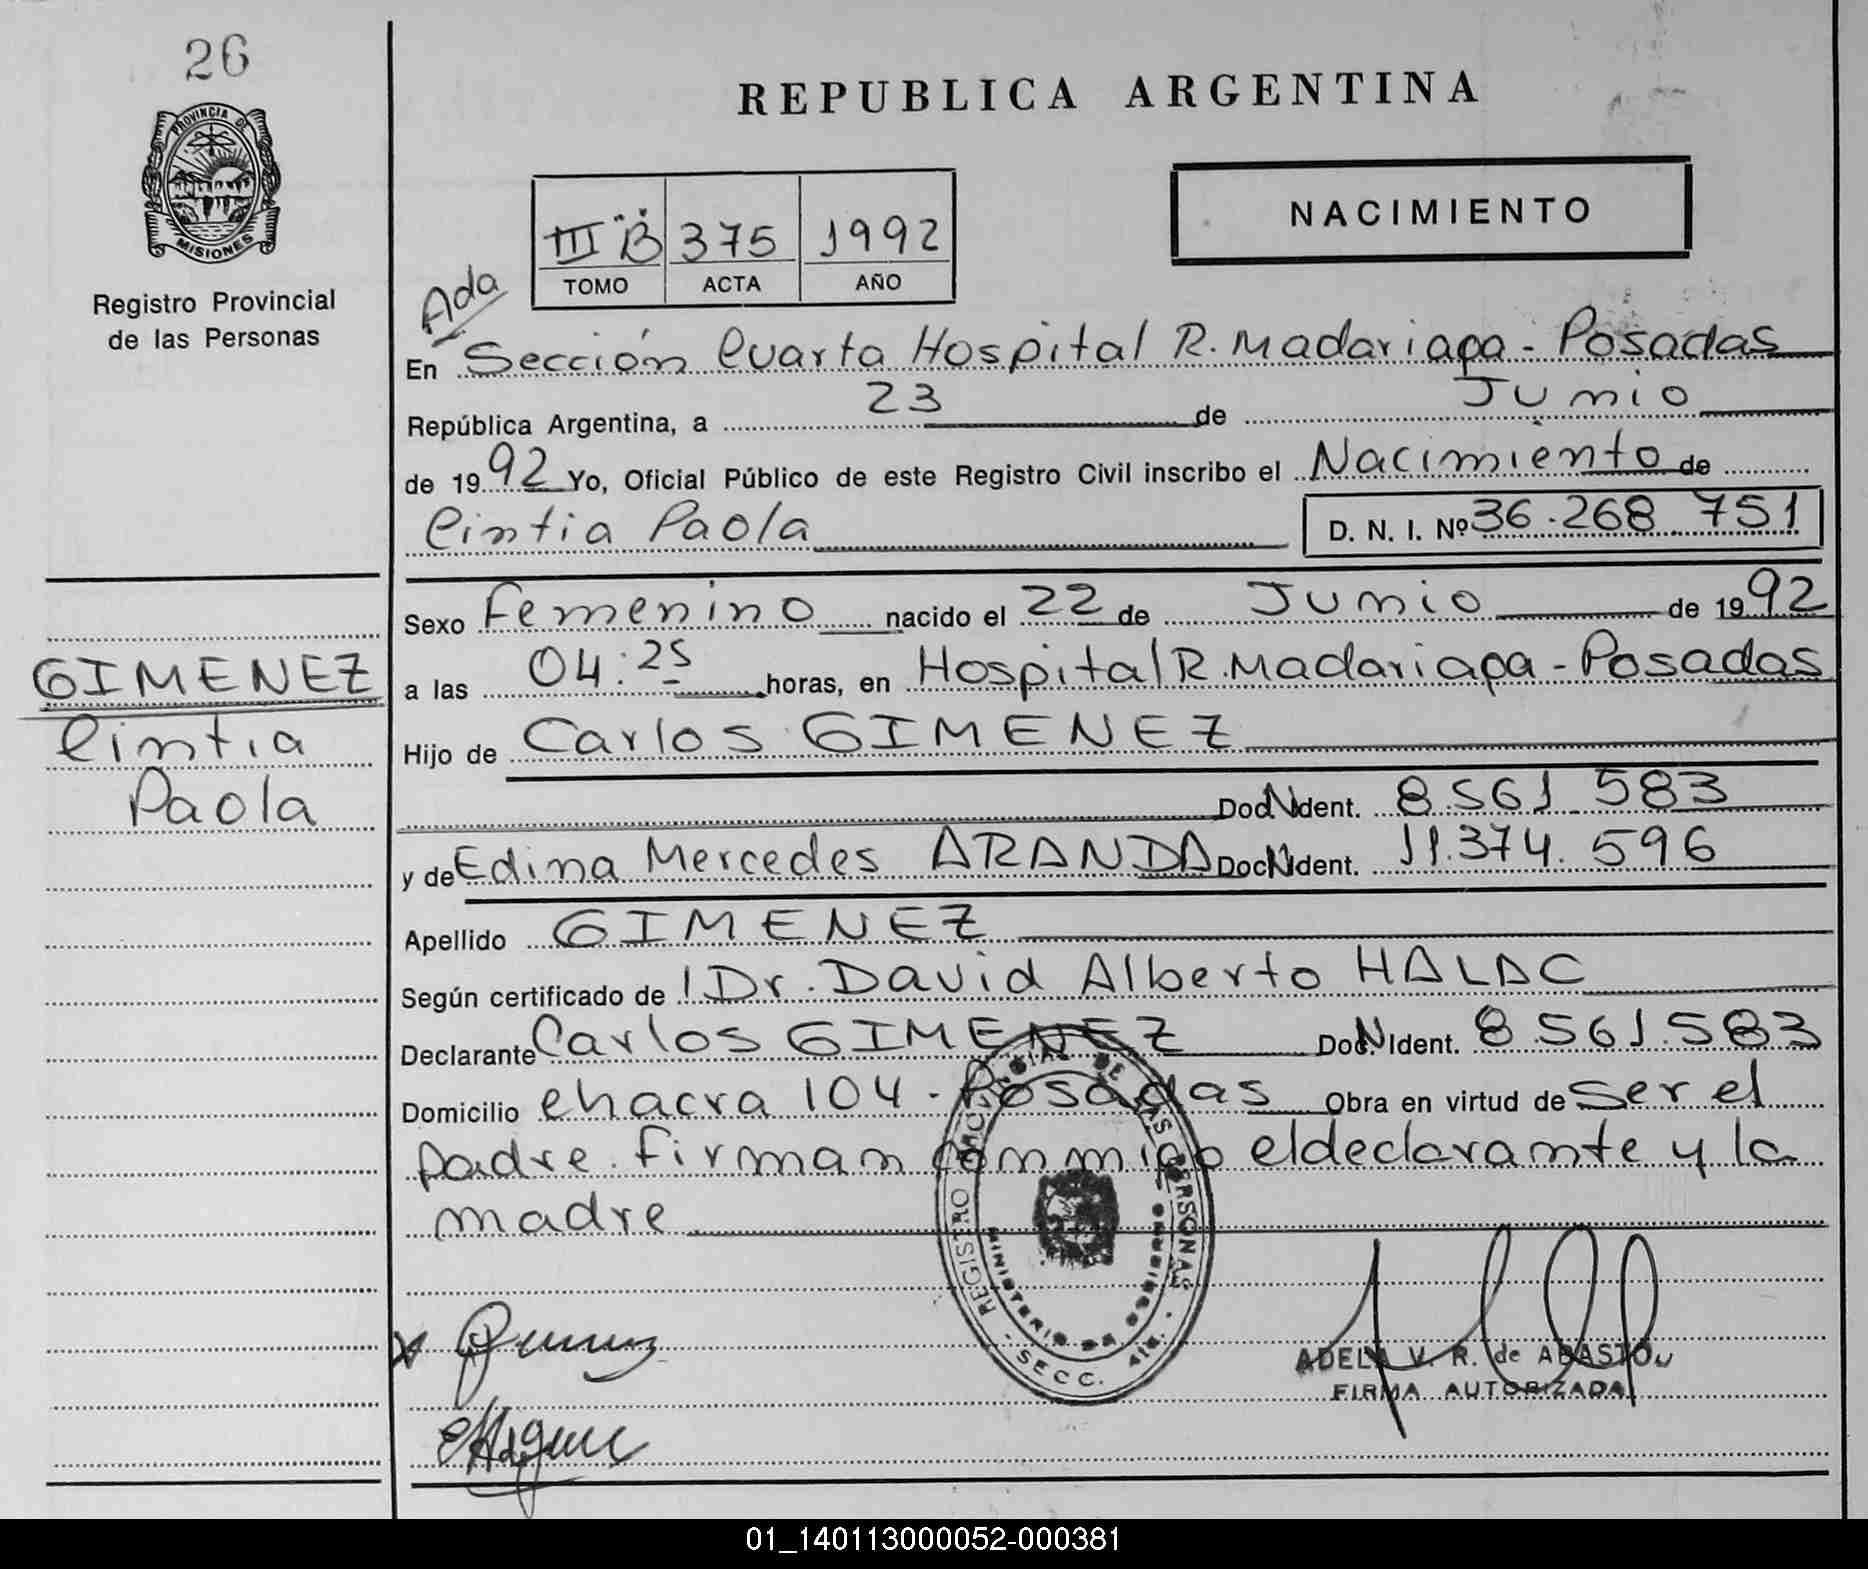 26
PROVINCIA DE
MISIONES
Registro Provincial
de las Personas
REPUBLICA ARGENTINA
III "B" 375 1992
TOMO ACTA AÑO
NACIMIENTO
Ada
En Sección Cuarta Hospital R. Madariaga - Posadas
República Argentina, a 23 de Junio
de 1992 Yo, Oficial Público de este Registro Civil inscribo el Nacimiento de
Cintia Paola D. N. I. Nº 36.268.751
Sexo Femenino nacido el 22 de Junio de 1992
GIMENEZ
Cintia
Paola
a las 04:25 horas, en Hospital R. Madariaga - Posadas
Hijo de Carlos GIMENEZ
Doc. N Ident. 8.561.583
y de Edina Mercedes ARANDA Doc. N Ident. 11.374.596
Apellido GIMENEZ
Según certificado de Dr. David Alberto HALAC
Declarante Carlos GIMENEZ Doc. N Ident. 8.561.583
Domicilio chacra 104 - Posadas Obra en virtud de ser el
padre. firman conmigo el declarante y la
madre
REGISTRO PROVINCIAL DE LAS PERSONAS
MINISTERIO DE GOBIERNO
SECC.
ADELA V. R. de ABASTO
FIRMA AUTORIZADA
01_140113000052-000381